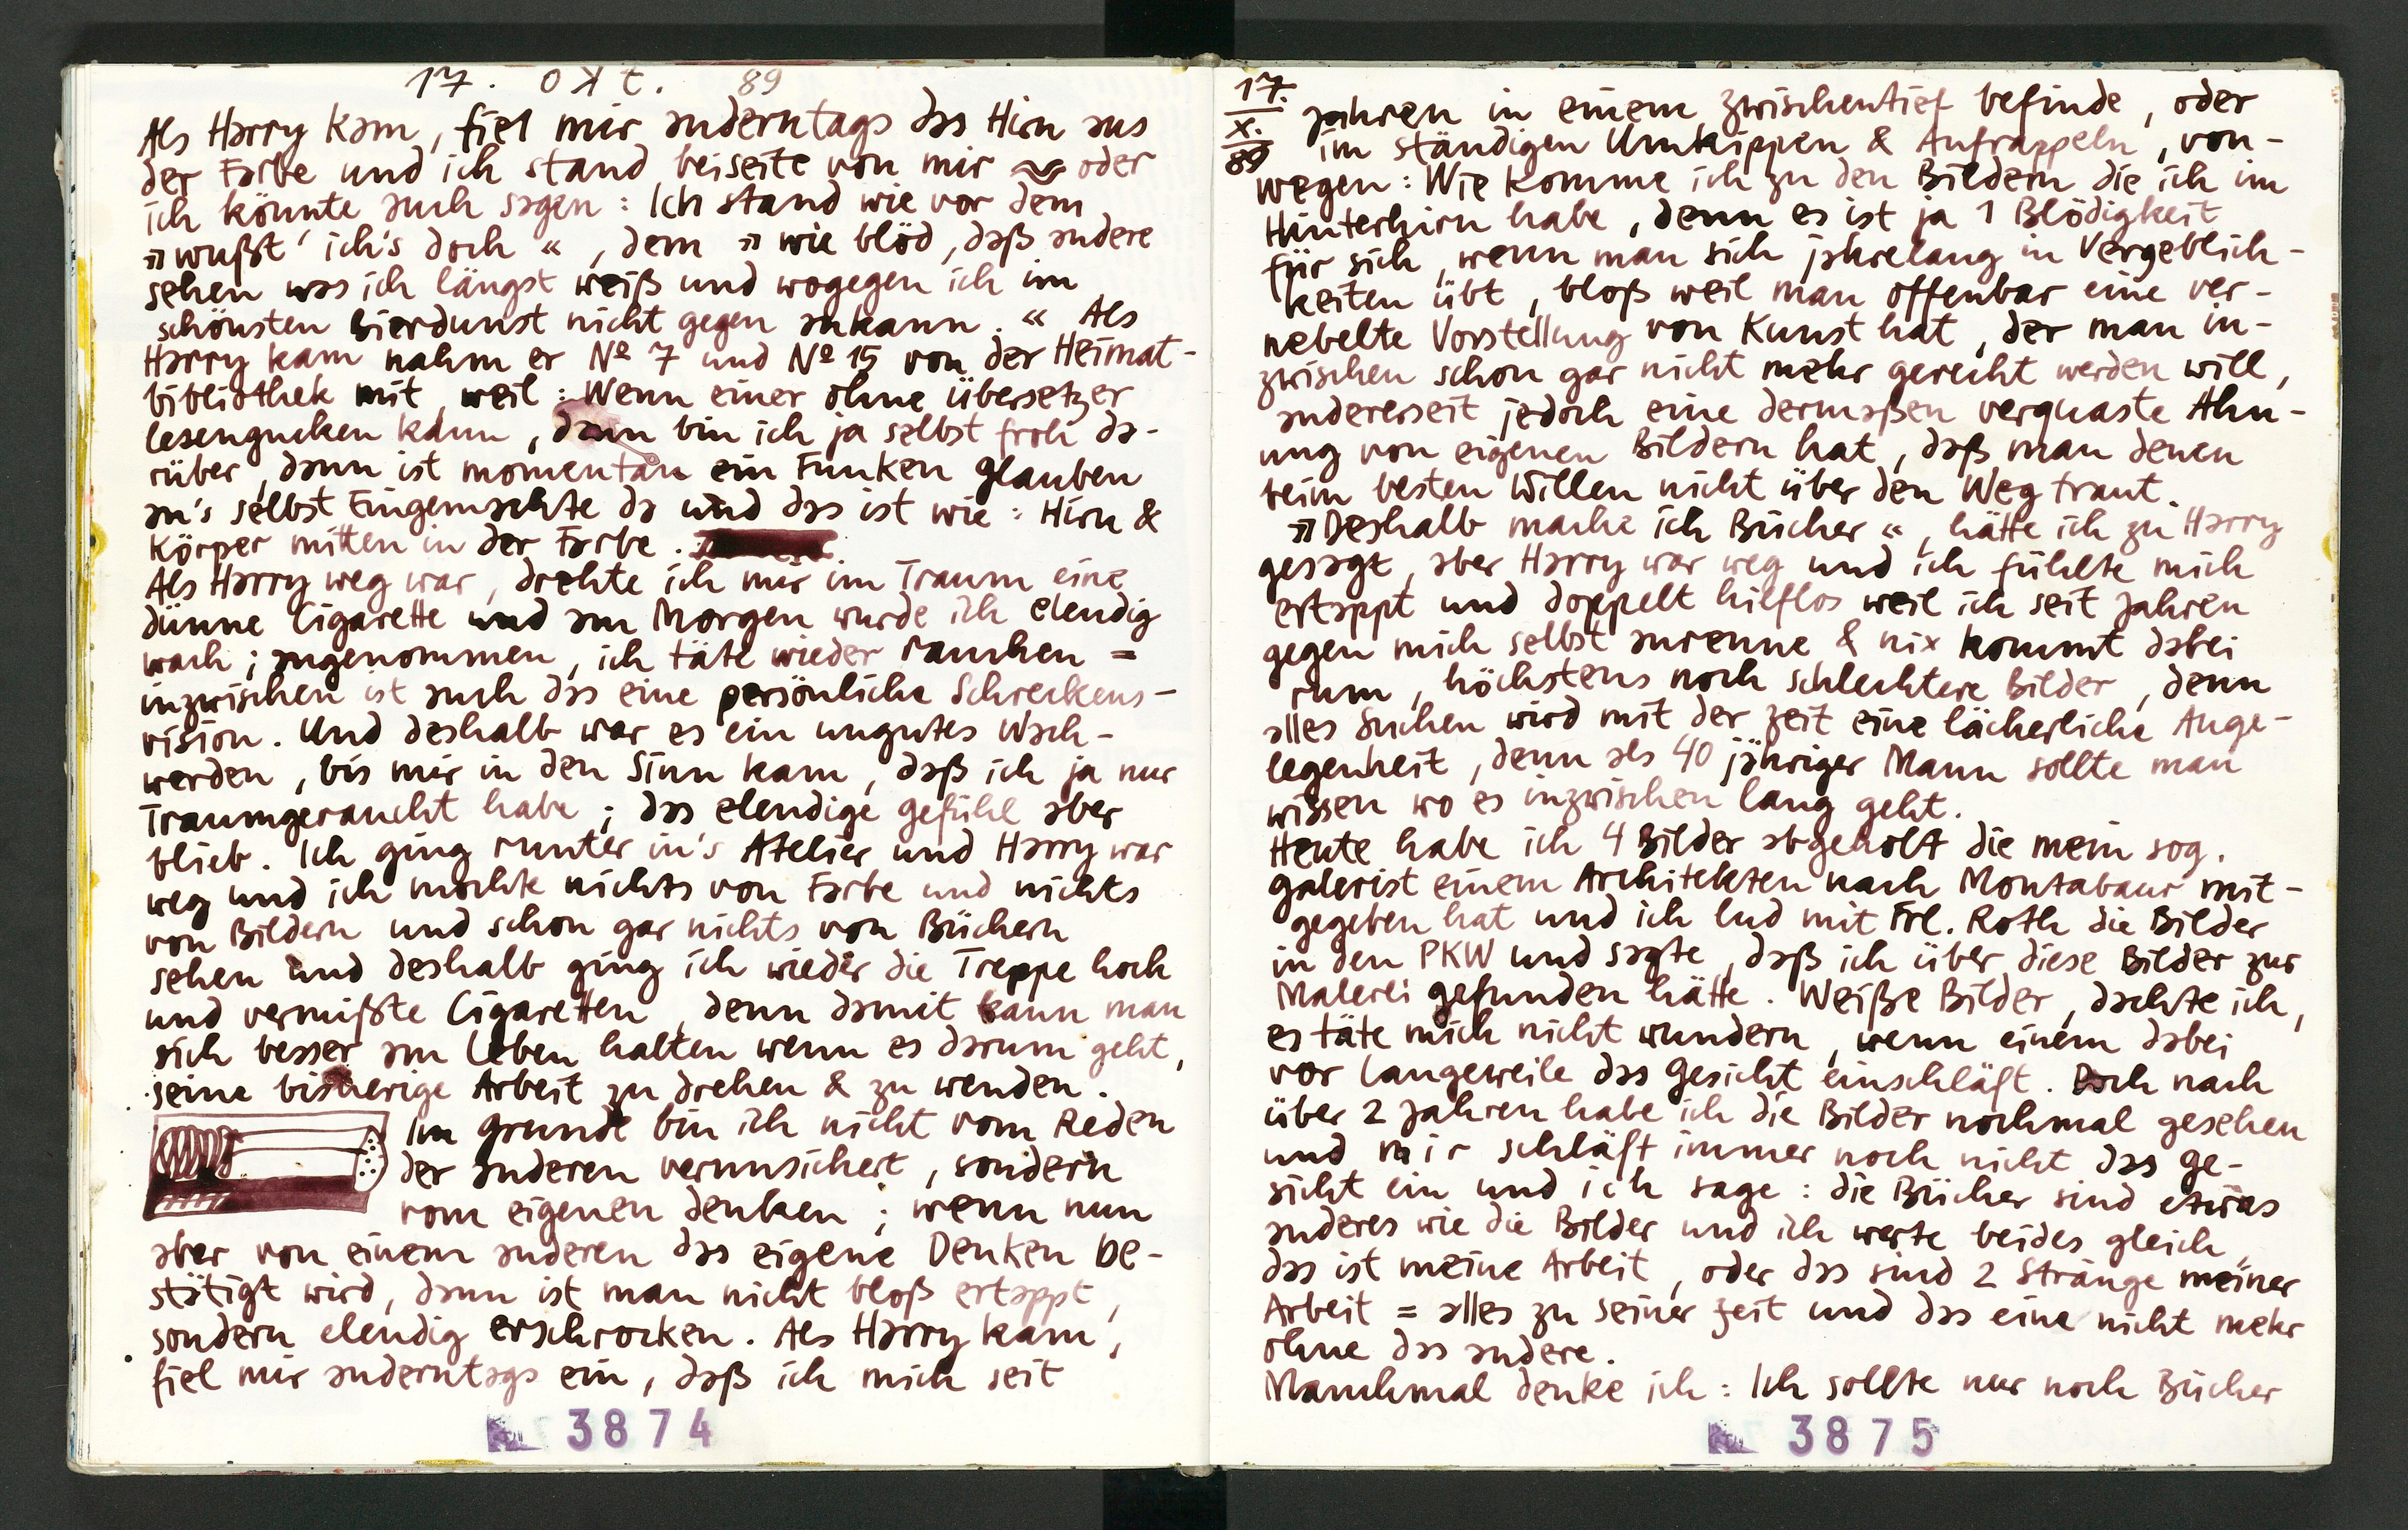 17. Okt. 89
Als Harry kam, fiel mir anderntags das Hirn aus
der Farbe und ich stand beiseite von mir oder
ich könnte auch sagen: Ich stand wie vor dem
»wußt' ich's doch«, dem »wie blöd, daß andere
sehen was ich längst weiß und wogegen ich im
schönsten Bierdunst nicht gegen ankann.« Als
Harry kam nahm er Nº 7 und Nº 15 von der Heimat-
bibliothek mit, weil: Wenn einer ohne Übersetzer
lesengucken kann, dann bin ich ja selbst froh da-
rüber, dann ist momentan ein Funken Glauben
an's selbst Eingemachte da und das ist wie: Hirn &
Körper mitten in der Farbe.
Als Harry weg war, drehte ich mir im Traum eine
dünne Cigarette und am Morgen wurde ich elendig
wach; angenommen, ich täte wieder rauchen =
inzwischen ist auch das eine persönliche Schreckens-
vision. Und deshalb war es ein ungutes Wach-
werden, bis mir in den Sinn kam, daß ich ja nur
Traumgeraucht habe; das elendige Gefühl aber
blieb. Ich ging runter in's Atelier und Harry war
weg und ich mochte nichts von Farbe und nichts
von Bildern und schon gar nichts von Büchern
sehen und deshalb ging ich wieder die Treppe hoch
und vermißte Cigaretten, denn damit kann man
sich besser am Leben halten wenn es darum geht,
seine bisherige Arbeit zu drehen & zu wenden.
Im Grunde bin ich nicht vom Reden
der anderen verunsichert, sondern
vom eigenen denken; wenn nun
aber von einem anderen das eigene Denken be-
stätigt wird, dann ist man nicht bloß ertappt,
sondern elendig erschrocken. Als Harry kam,
fiel mir anderntags ein, daß ich mich seit
3874
17.
X.
89
Jahren in einem Zwischentief befinde, oder
im ständigen Umkippen & Aufrappeln, von-
wegen: Wie komme ich zu den Bildern die ich im
Hinterhirn habe, denn es ist ja 1 Blödigkeit
für sich, wenn man sich jahrelang in Vergeblich-
keiten übt, bloß weil man offenbar eine ver-
nebelte Vorstellung von Kunst hat, der man in-
zwischen schon gar nicht mehr gerecht werden will,
andererseit jedoch eine dermaßen verquaste Ahn-
ung von eigenen Bildern hat, daß man denen
beim besten Willen nicht über den Weg traut.
»Deshalb mache ich Bücher«, hätte ich zu Harry
gesagt, aber Harry war weg und ich fühlte mich
ertappt und doppelt hilflos weil ich seit Jahren
gegen mich selbst anrenne & nix kommt dabei
rum, höchstens noch schlechtere Bilder, denn
alles Suchen wird mit der Zeit eine lächerliche Ange-
legenheit, denn als 40 jähriger Mann sollte man
wissen wo es inzwischen lang geht.
Heute habe ich 4 Bilder abgeholt die mein sog.
Galerist einem Architekten nach Montabaur mit-
gegeben hat und ich lud mit Frl. Roth die Bilder
in den PKW und sagte, daß ich über diese Bilder zur
Malerei gefunden hätte. Weiße Bilder, dachte ich,
es täte mich nicht wundern, wenn einem dabei
vor Langeweile das Gesicht einschläft. Doch nach
über 2 Jahren habe ich die Bilder nochmal gesehen
und mir schläft immer noch nicht das Ge-
sicht ein und ich sage: die Bücher sind etwas
anderes wie die Bilder und ich werte beides gleich,
das ist meine Arbeit, oder das sind 2 Stränge meiner
Arbeit = alles zu seiner Zeit und das eine nicht mehr
ohne das andere.
Manchmal denke ich: Ich sollte nur noch Bücher
3875